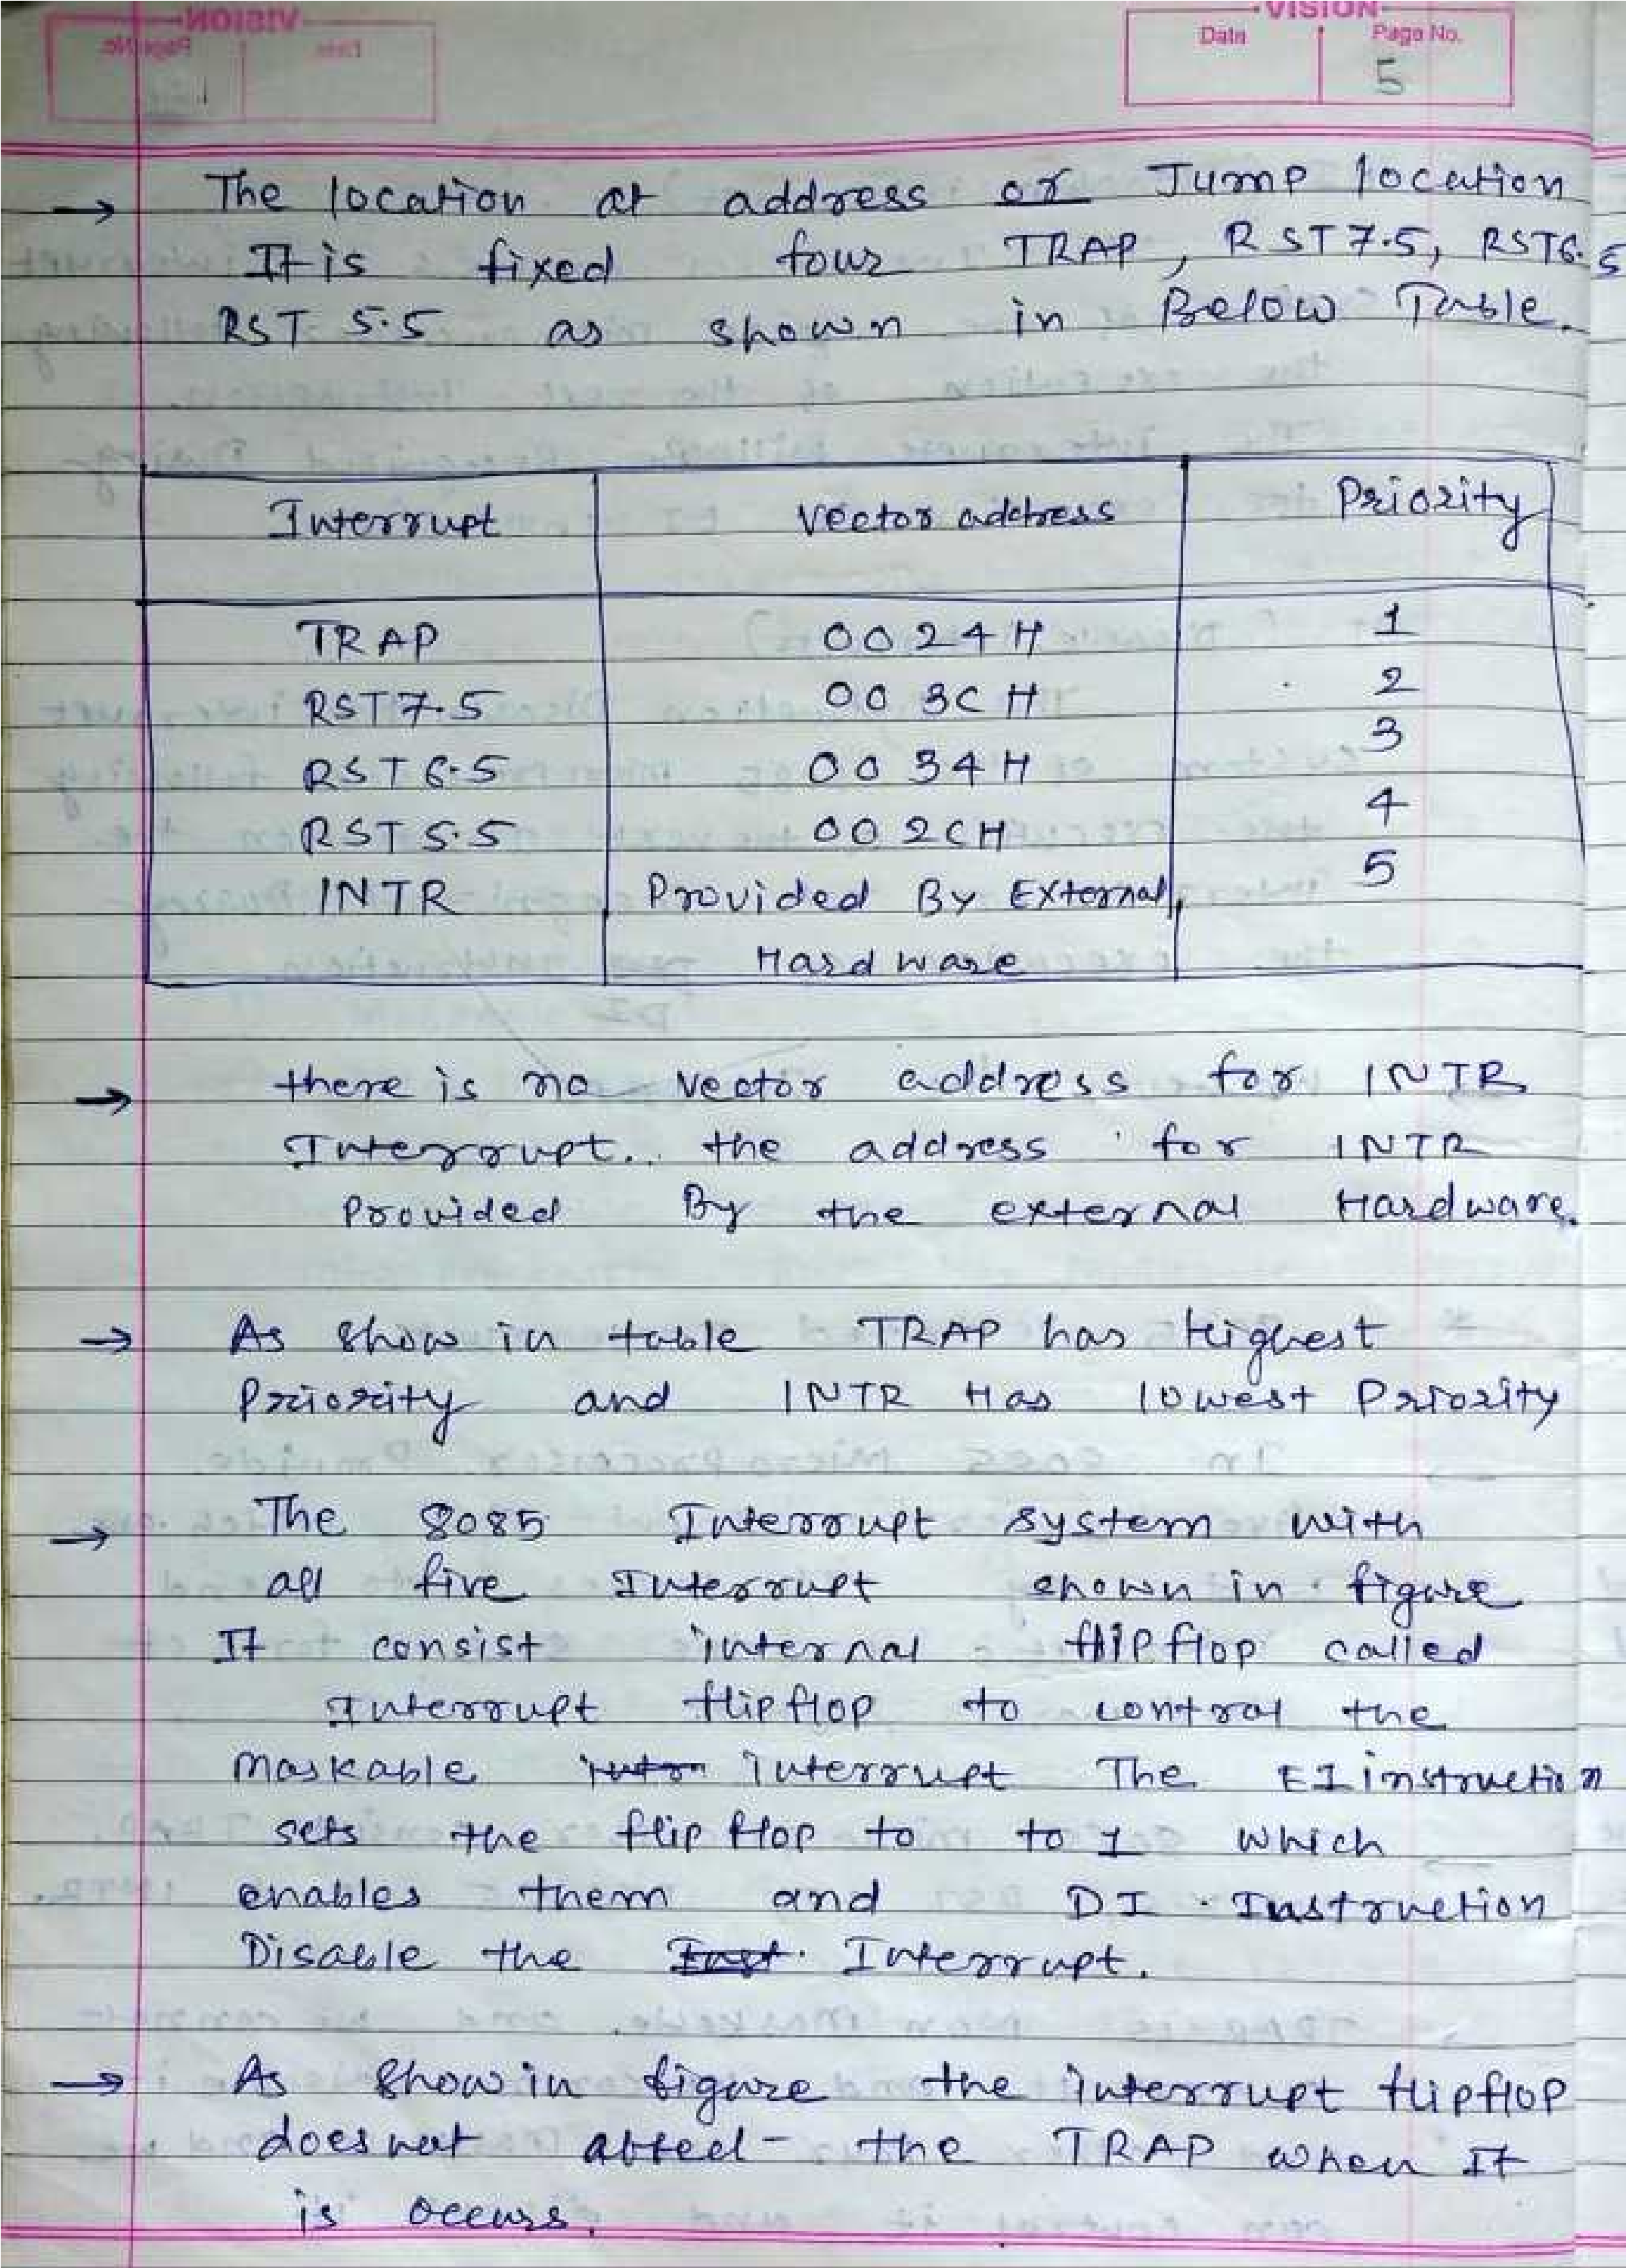 VISION
Date Page No.
5
→ The location at address or Jump location
It is fixed four TRAP, RST7.5, RST6.5
RST 5.5 as shown in Below Table.
Interrupt Vector address Priority
TRAP 0024H 1
RST7.5 003CH 2
RST6.5 0034H 3
RST5.5 002CH 4
INTR Provided By External 5
Hardware
→ there is no vector address for INTR
Interrupt.. the address for INTR
Provided By the external Hardware.
→ As show in table TRAP has Highest
Priority and INTR Has lowest Priority
→ The 8085 Interrupt system with
all five Interrupt shown in figure
It consist internal flipflop called
Interrupt flipflop to control the
Maskable interrupt The EI instruction
sets the flip flop to to 1 which
enables them and DI Instruction
Disable the Interrupt.
→ As show in figure the interrupt flipflop
does not affect the TRAP when It
is occurs.